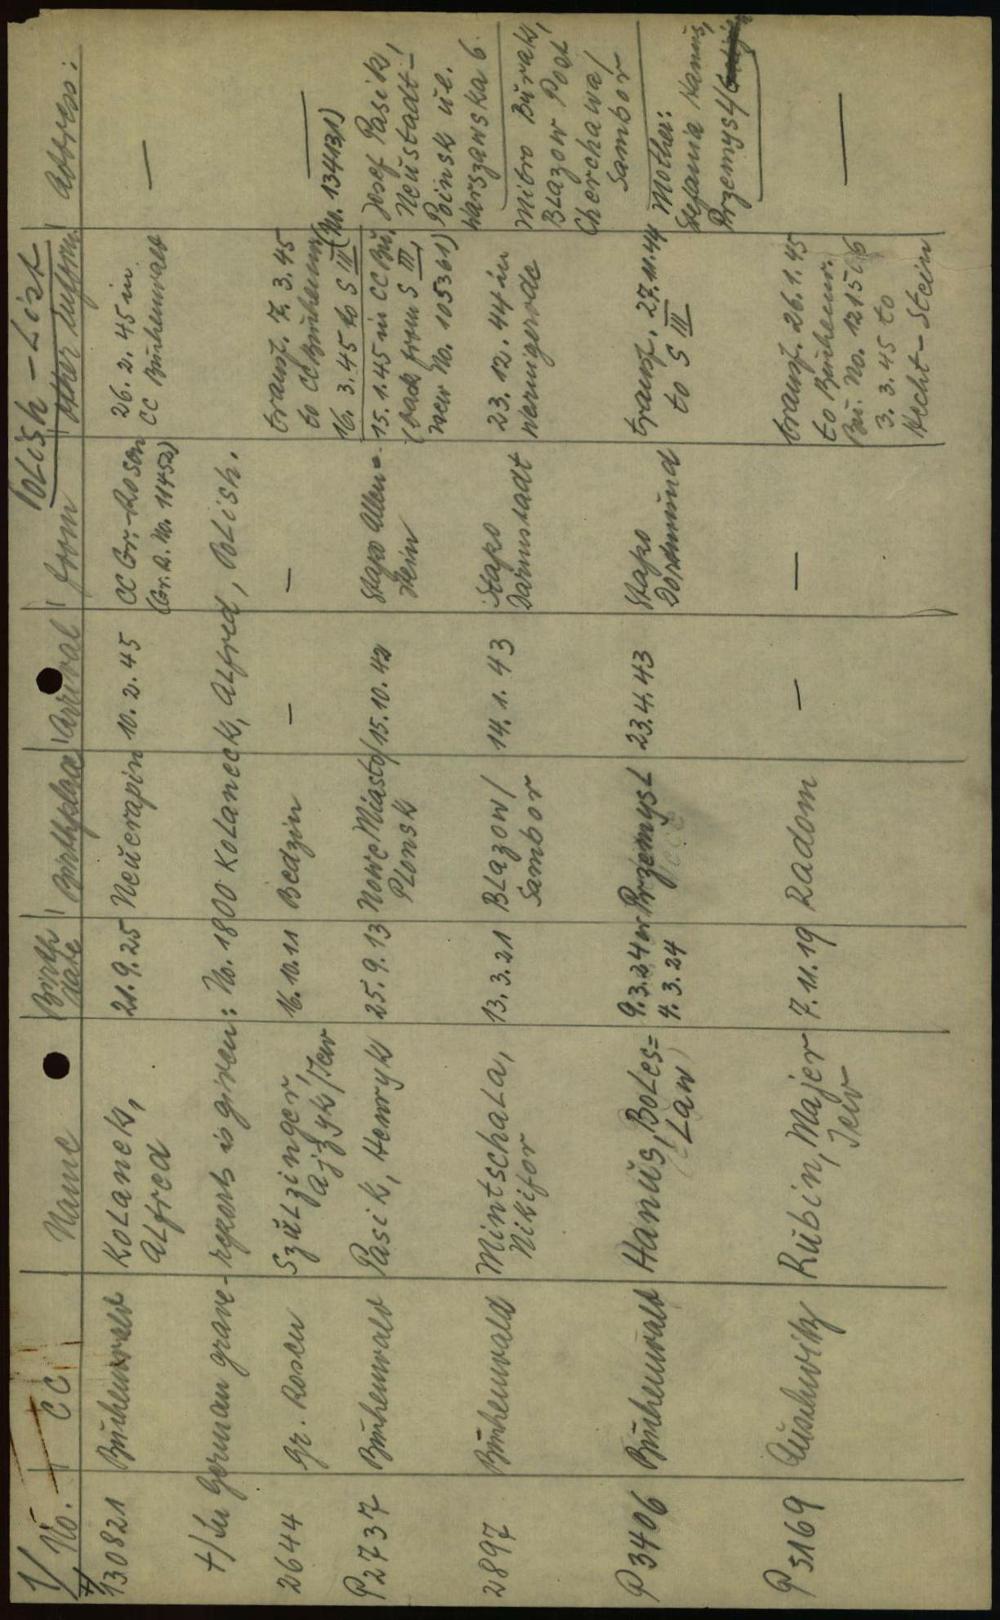 V
Polish-List
No. CC Name Birthdate Birthplace Arrival from other inform. Address:
+/ 130821 Buchenwald Kolanek, Alfred 21.9.25 Neuerapin 10.2.45 CC Gr.-Rosen (Gr. R. No. 11452) 26.2.45 in CC Buchenwald —
+/ In German grave-reports is given: No. 1800 Kolaneck, Alfred, Polish.
2644 Gr. Rosen Szulzinger, Ajzyk/Jew 16.10.11 Bedzin — — transf. 7.3.45 to CC Buchenw. 16.3.45 to S III (No. 134131) —
P 2737 Buchenwald Pasik, Henryk 25.9.13 Nowe Miasto/ Plonsk 15.10.42 Stapo Allen=stein 15.1.45 in CC Bu. (back from S III, new No. 105361) Josef Pasik, Neustadt- Poinsk ul. Warszawska 6.
2897 Buchenwald Mintschala, Nikifor 13.3.21 Blazow/ Sambor 14.1.43 Stapo Darmstadt 23.12.44 in Wernigerode Mitro Burak, Blazow Post Cherchawa/ Sambor
P 3406 Buchenwald Hanus, Boles=law 9.3.24 or 4.3.24 Przemysl 23.4.43 Stapo Dortmund transf. 27.11.44 to S III Mother: Stefania Hanus, Przemysl/
P 5169 Auschwitz Rubin, Majer Jew 7.11.19 Radom — — transf. 26.1.45 to Buchenw. Bu. No. 121576 3.3.45 to Hecht-Stein —